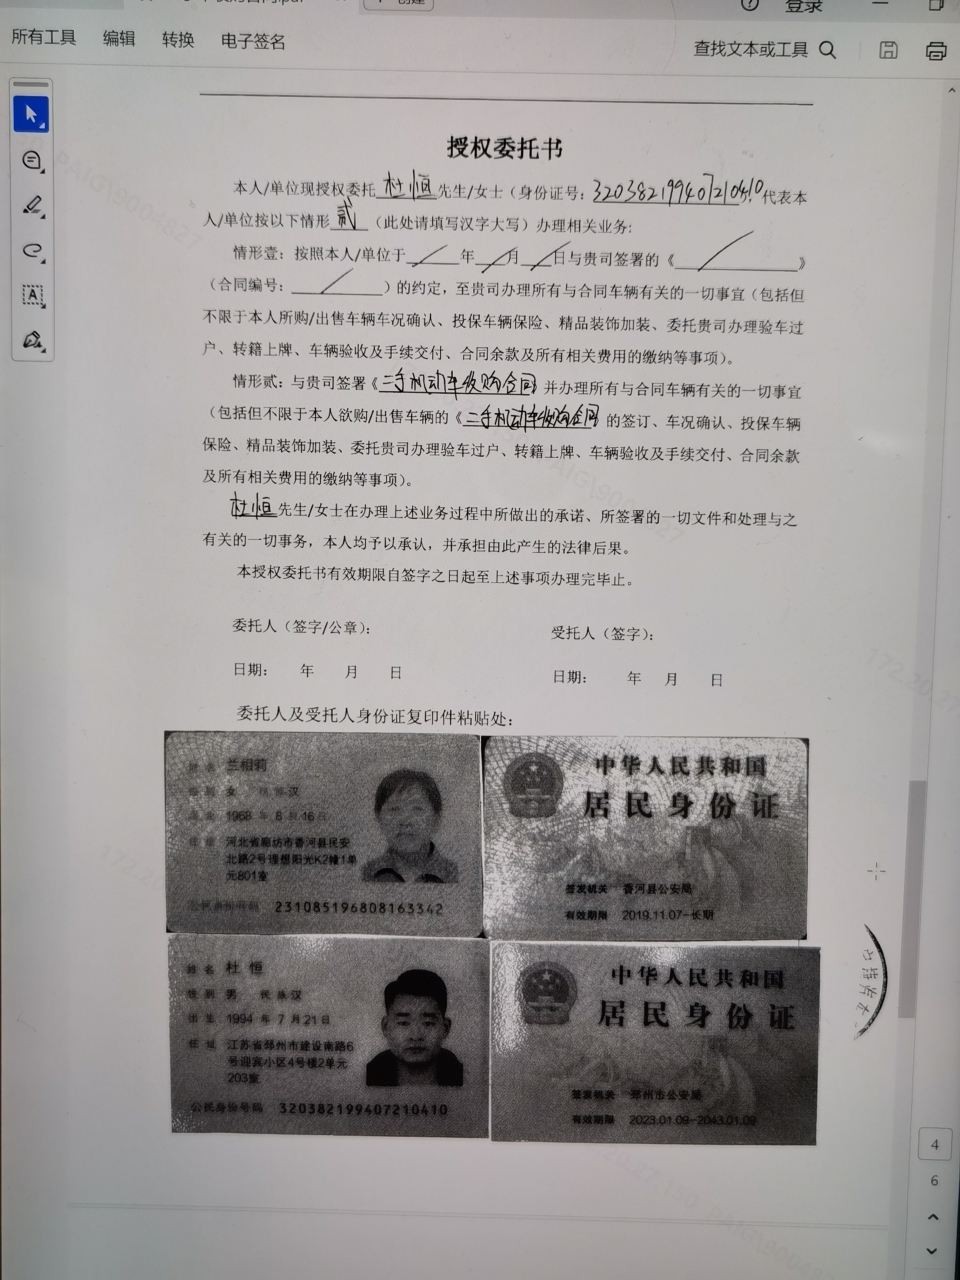 登录
所有工具 编辑 转换 电子签名
查找文本或工具
授权委托书
本人/单位现授权委托杜恒先生/女士（身份证号：320382199407210410代表本
人/单位按以下情形贰（此处请填写汉字大写）办理相关业务:
情形壹：按照本人/单位于 年 月 日与贵司签署的《 》
（合同编号： ）的约定，至贵司办理所有与合同车辆有关的一切事宜（包括但
不限于本人所购/出售车辆车况确认、投保车辆保险、精品装饰加装、委托贵司办理验车过
户、转籍上牌、车辆验收及手续交付、合同余款及所有相关费用的缴纳等事项）。
情形贰：与贵司签署《二手机动车收购合同》并办理所有与合同车辆有关的一切事宜
（包括但不限于本人欲购/出售车辆的《二手机动车收购合同》的签订、车况确认、投保车辆
保险、精品装饰加装、委托贵司办理验车过户、转籍上牌、车辆验收及手续交付、合同余款
及所有相关费用的缴纳等事项）。
杜恒先生/女士在办理上述业务过程中所做出的承诺、所签署的一切文件和处理与之
有关的一切事务，本人均予以承认，并承担由此产生的法律后果。
本授权委托书有效期限自签字之日起至上述事项办理完毕止。
委托人（签字/公章）： 受托人（签字）：
日期： 年 月 日 日期： 年 月 日
委托人及受托人身份证复印件粘贴处：
姓名 兰相莉
性别 女 民族 汉
出生 1968 年 8 月 16 日
住址 河北省廊坊市香河县民安
北路2号理想阳光K2幢1单
元801室
公民身份号码 231085196808163342
中华人民共和国
居民身份证
签发机关 香河县公安局
有效期限 2019.11.07-长期
姓名 杜恒
性别 男 民族 汉
出生 1994 年 7 月 21 日
住址 江苏省邳州市建设南路6
号迎宾小区4号楼2单元
203室
公民身份号码 320382199407210410
中华人民共和国
居民身份证
签发机关 邳州市公安局
有效期限 2023.01.09-2043.01.09
4
6